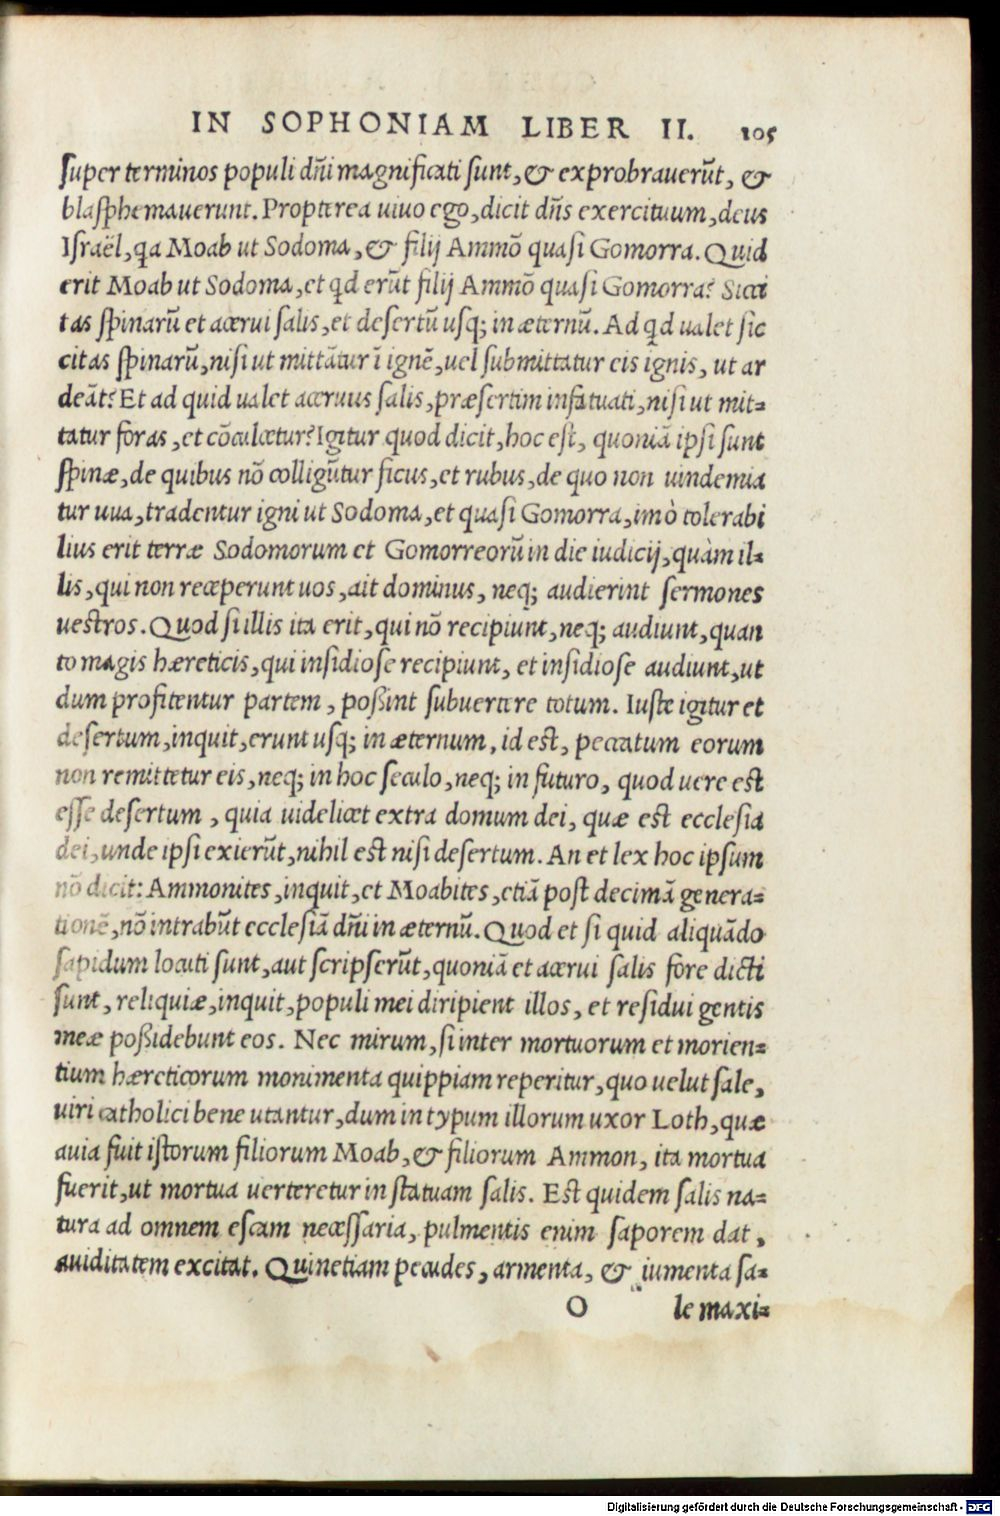 IN SOPHONIAM LIBER II. 105
super terminos populi dñi magnificati sunt, & exprobrauerũt, &
blasphemauerunt. Propterea uiuo ego, dicit dñs exercituum, deus
Israël, qa Moab ut Sodoma, & filij Ammõ quasi Gomorra. Quid
erit Moab ut Sodoma, et qd erũt filij Ammõ quasi Gomorra? Sicci
tas spinarũ et acerui salis, et desertũ usq; in æternũ. Ad qd ualet sic
citas spinarũ, nisi ut mittãtur ĩ ignẽ, uel submittatur eis ignis, ut ar
deãt? Et ad quid ualet aceruus salis, præsertim infatuati, nisi ut mit=
tatur foras, et cõculcetur? Igitur quod dicit, hoc est, quoniã ipsi sunt
spinæ, de quibus nõ colligũtur ficus, et rubus, de quo non uindemia
tur uua, tradentur igni ut Sodoma, et quasi Gomorra, imò tolerabi
lius erit terræ Sodomorum et Gomorreorũ in die iudicij, quàm il=
lis, qui non receperunt uos, ait dominus, neq; audierint sermones
uestros. Quod si illis ita erit, qui nõ recipiunt, neq; audiunt, quan
to magis hæreticis, qui insidiose recipiunt, et insidiose audiunt, ut
dum profitentur partem, poßint subuertere totum. Iuste igitur et
desertum, inquit, erunt usq; in æternum, id est, peccatum eorum
non remittetur eis, neq; in hoc seculo, neq; in futuro, quod uere est
esse desertum, quia uidelicet extra domum dei, quæ est ecclesia
dei, unde ipsi exierũt, nihil est nisi desertum. An et lex hoc ipsum
nõ dicit: Ammonites, inquit, et Moabites, etiã post decimã genera=
tionẽ, nõ intrabũt ecclesiã dñi in æternũ. Quod et si quid aliquãdo
sapidum locuti sunt, aut scripserũt, quoniã et acerui salis fore dicti
sunt, reliquiæ, inquit, populi mei diripient illos, et residui gentis
meæ poßidebunt eos. Nec mirum, si inter mortuorum et morien=
tium hæreticorum monimenta quippiam reperitur, quo uelut sale,
uiri catholici bene utantur, dum in typum illorum uxor Loth, quæ
auia fuit istorum filiorum Moab, & filiorum Ammon, ita mortua
fuerit, ut mortua uerteretur in statuam salis. Est quidem salis na=
tura ad omnem escam necessaria, pulmentis enim saporem dat,
auiditatem excitat. Quinetiam pecudes, armenta, & iumenta sa=
O le maxi=
Digitalisierung gefördert durch die Deutsche Forschungsgemeinschaft - DFG